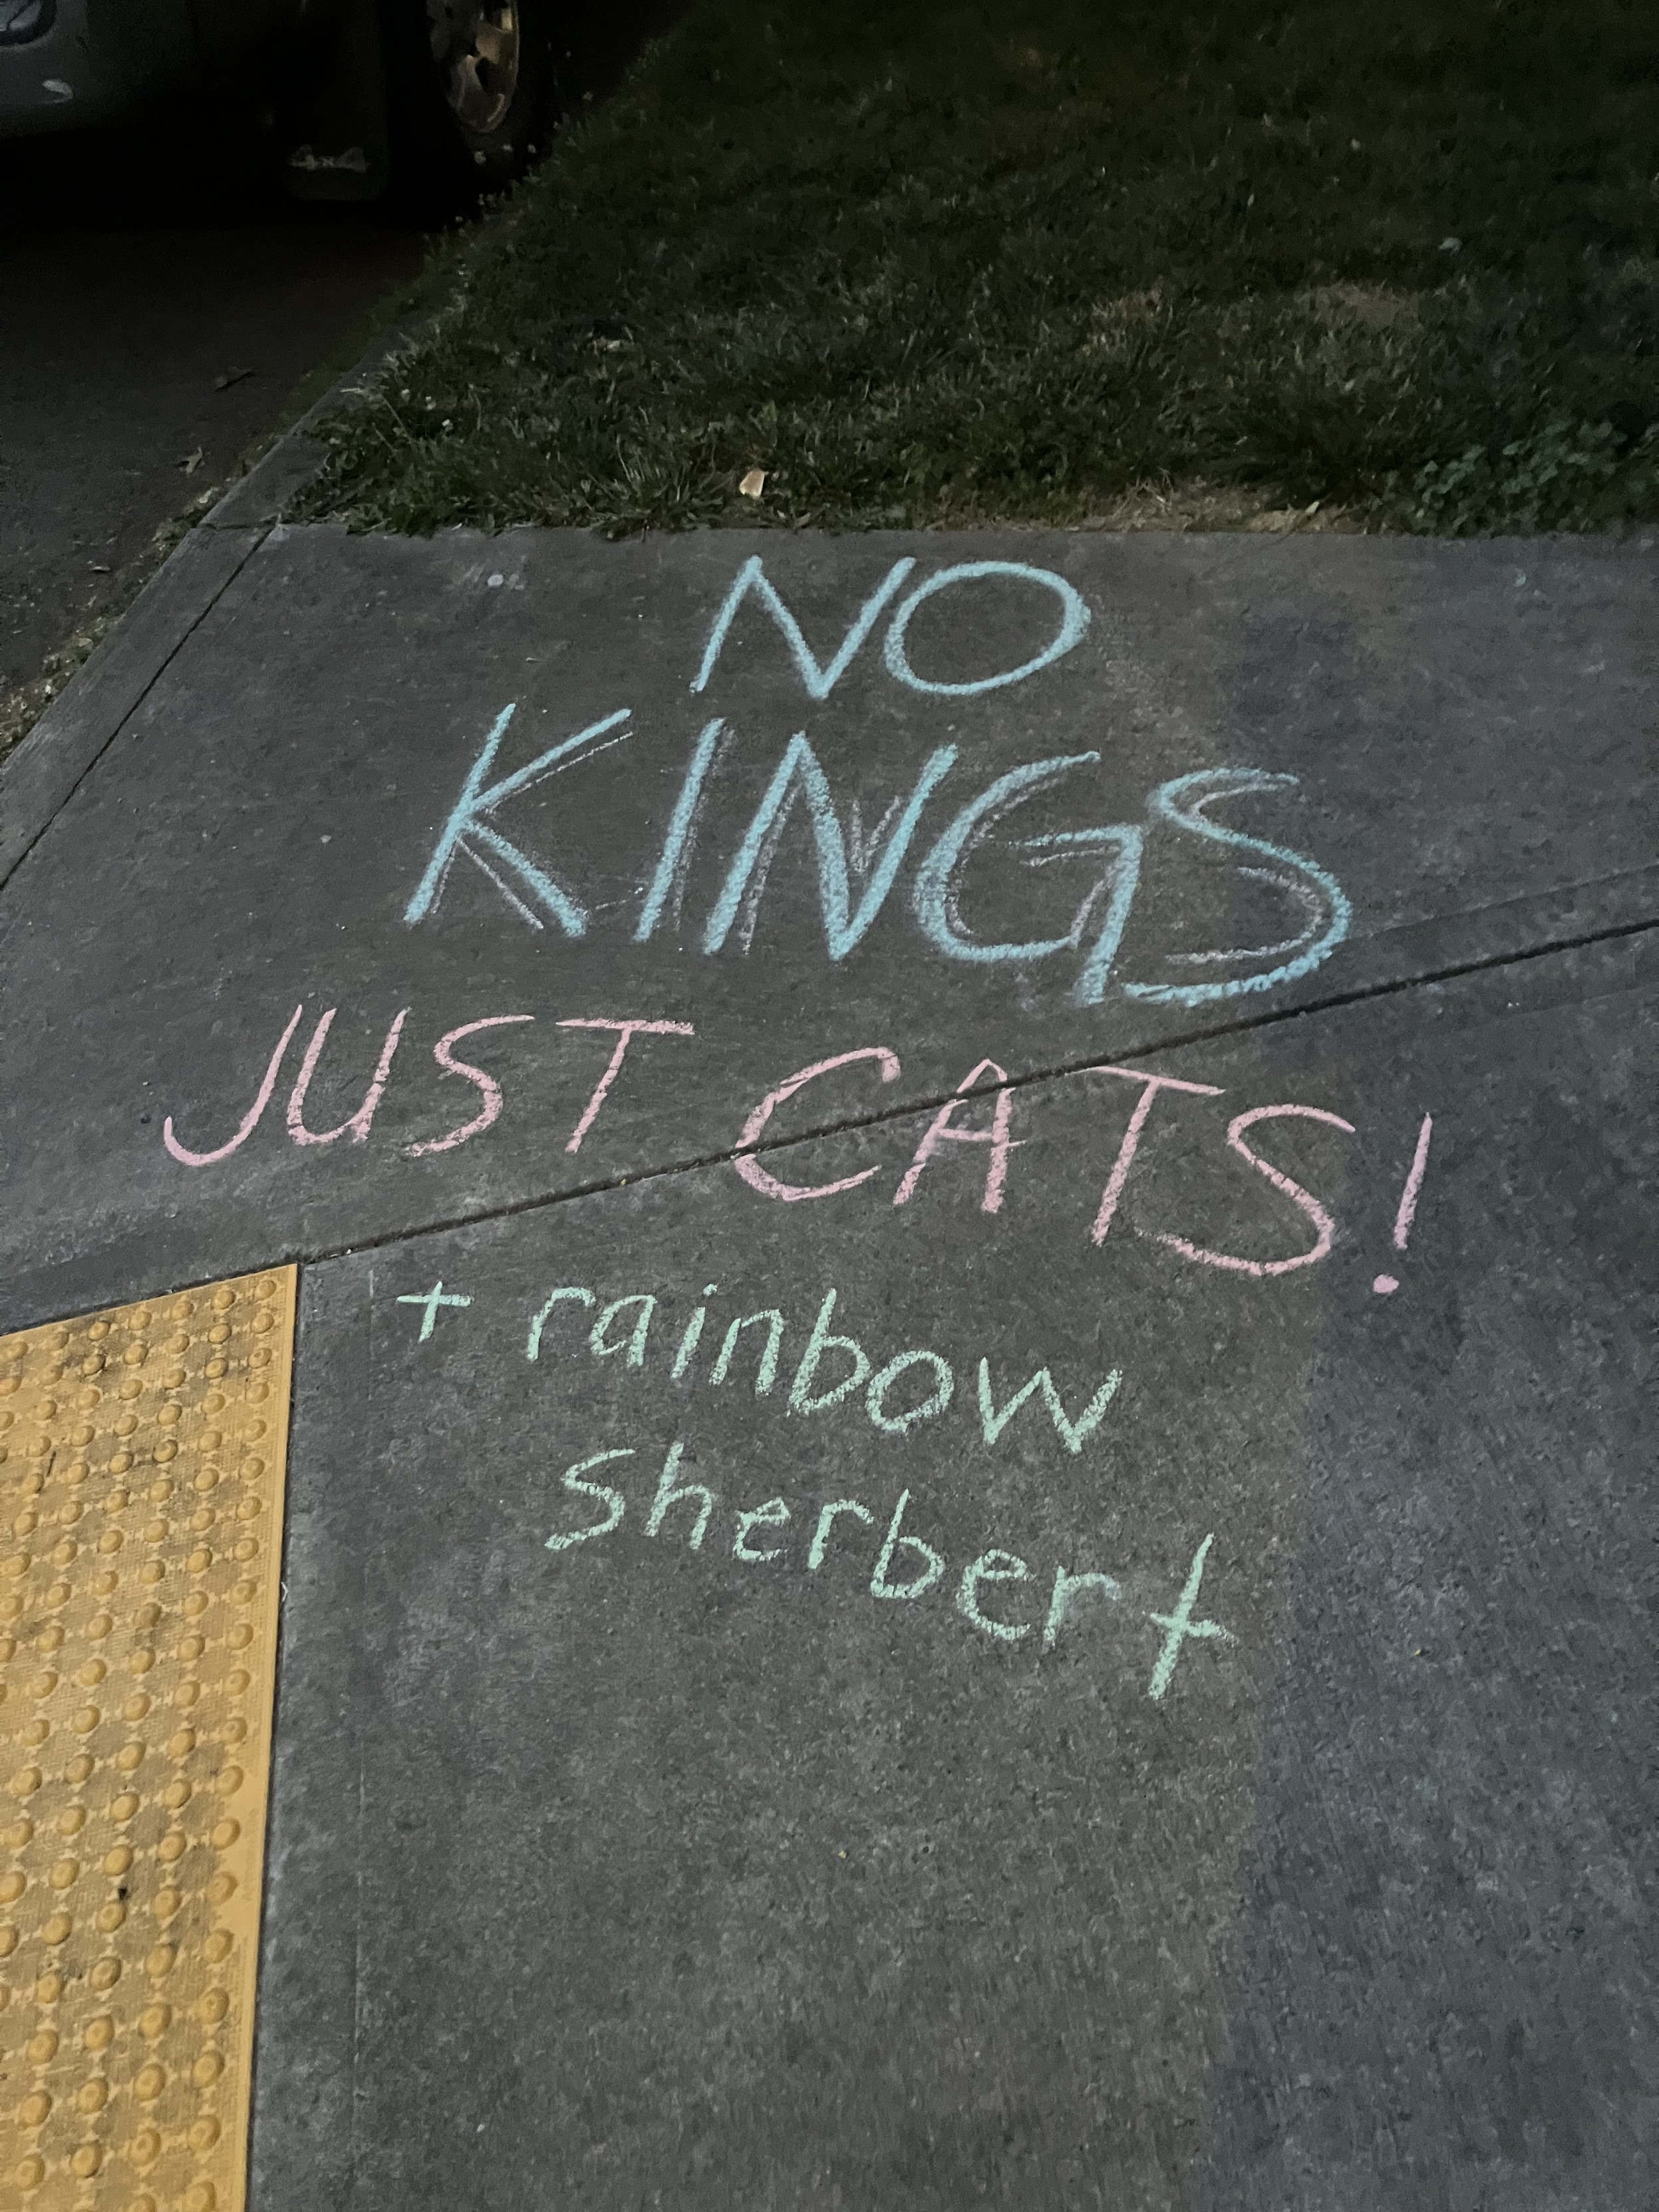 NO
KINGS
JUST CATS!
+ rainbow
sherbert